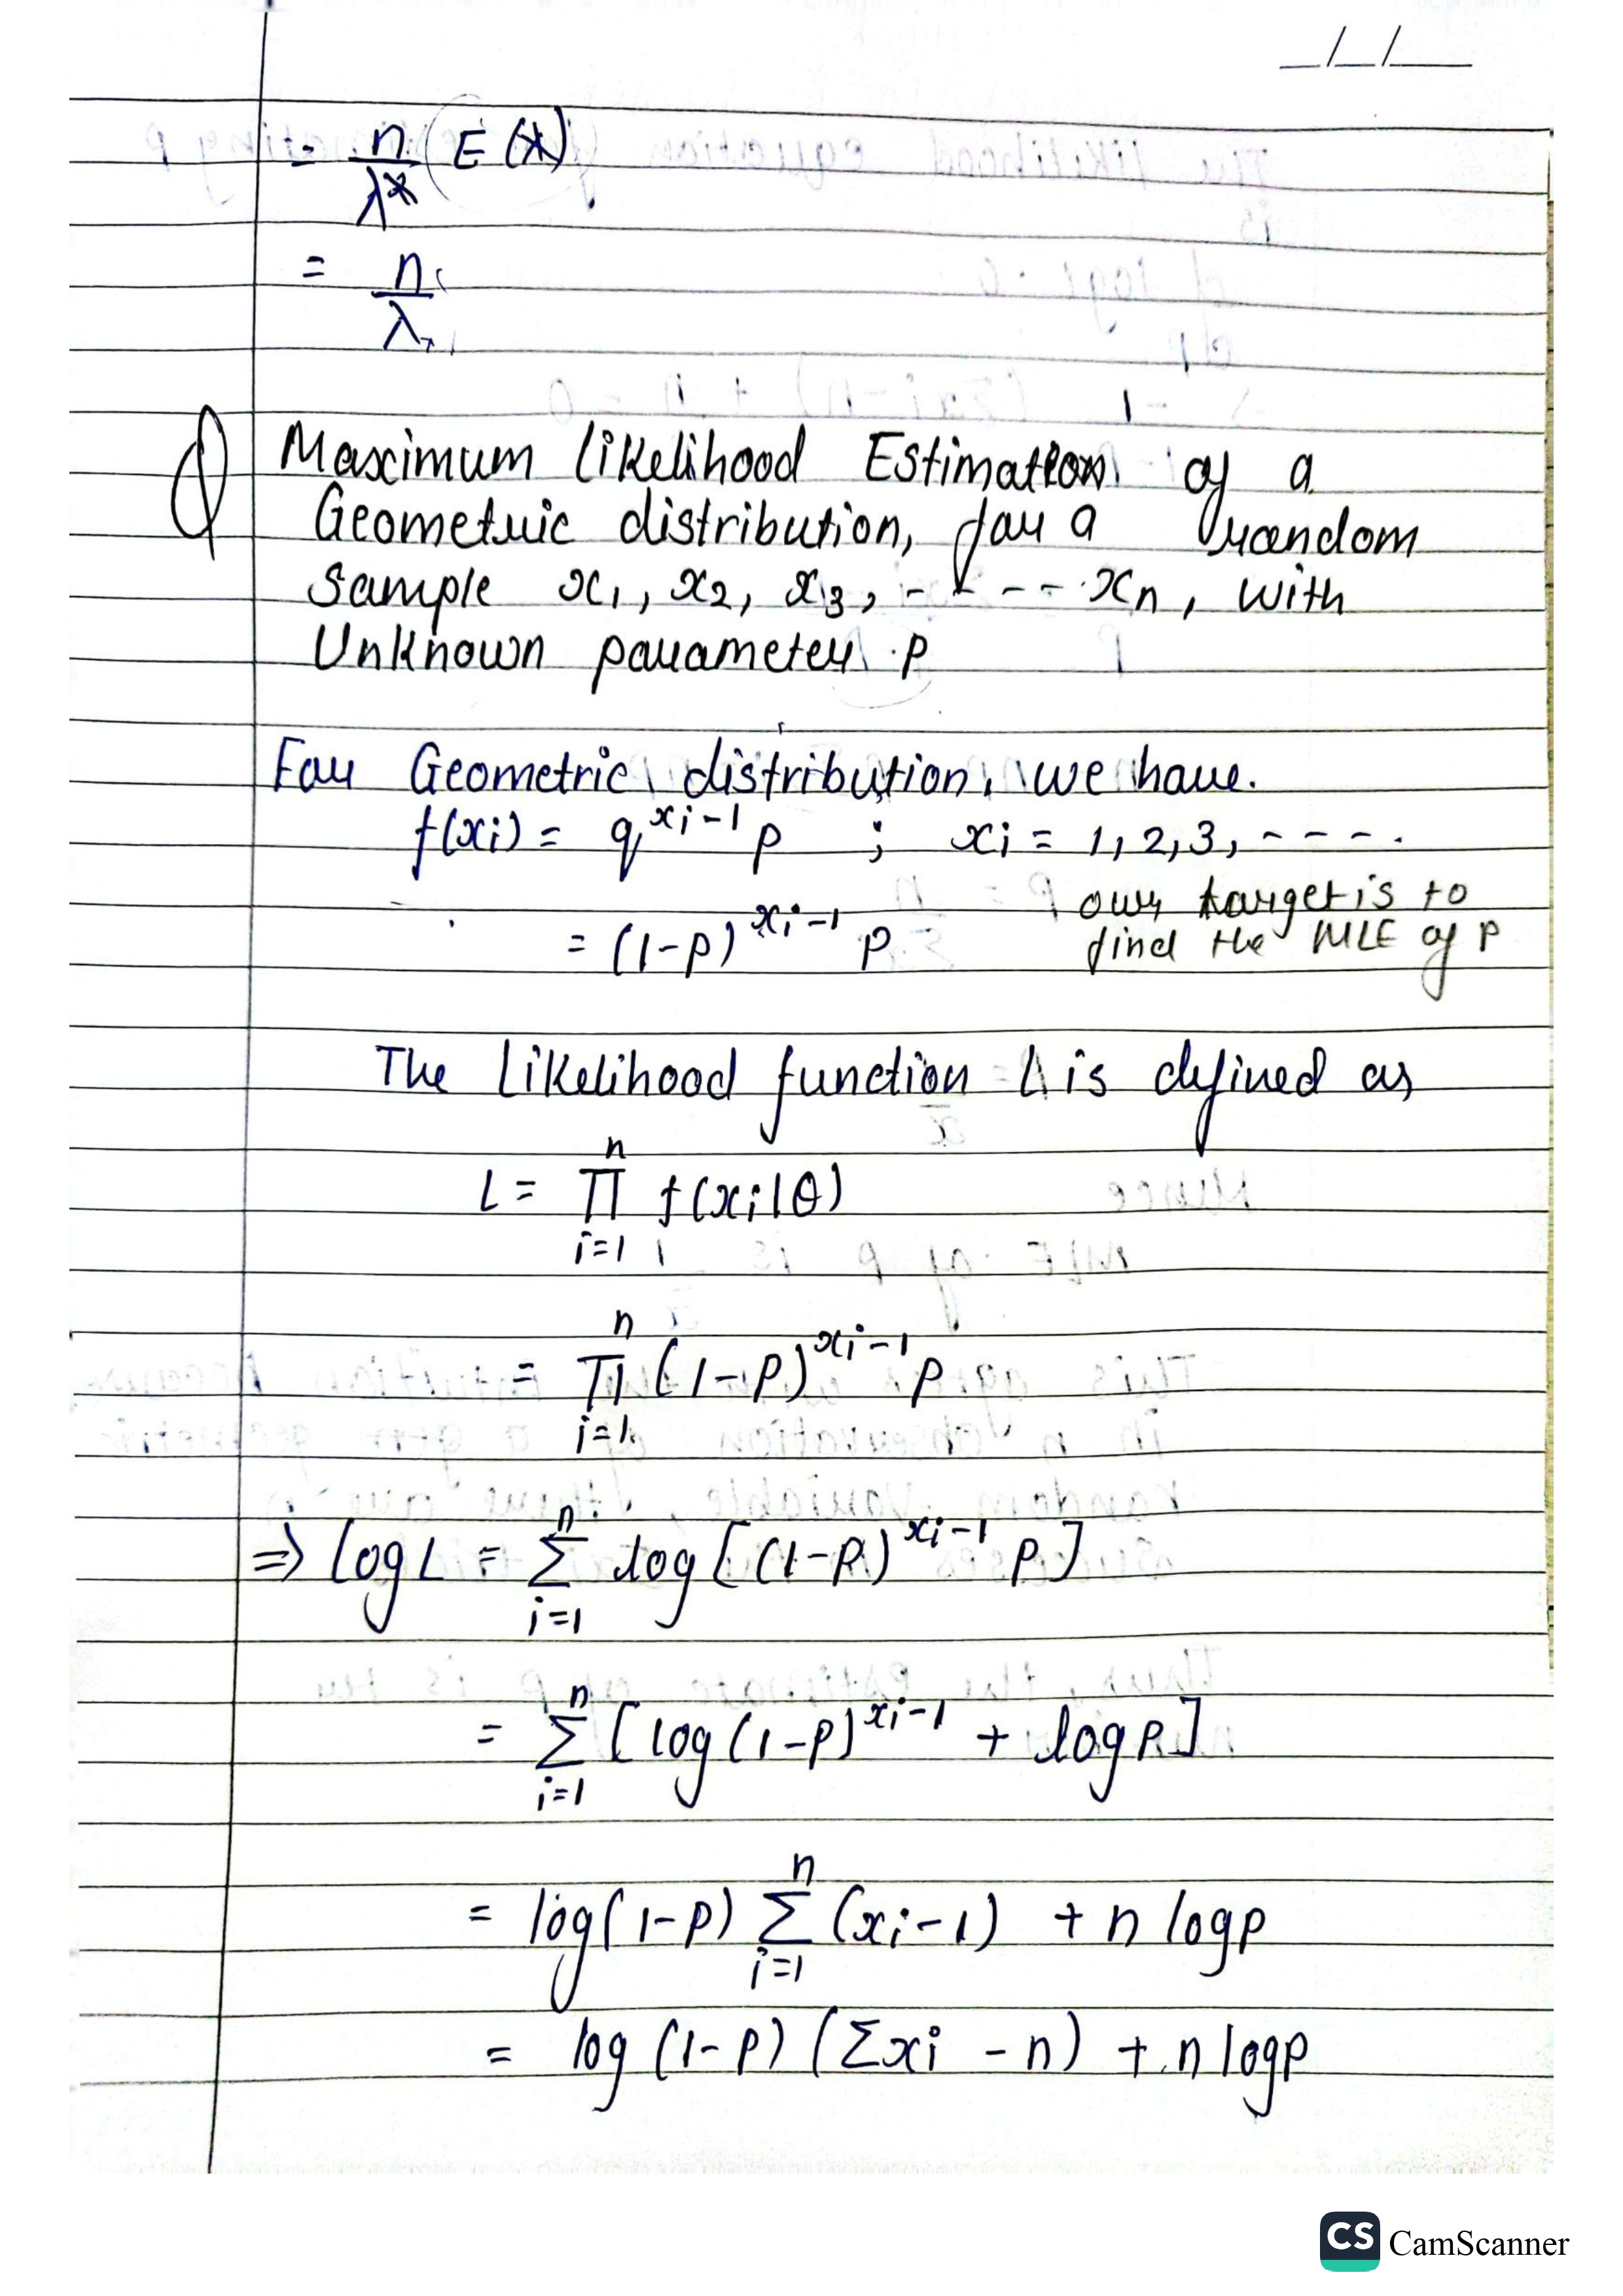 _/_/__
= n/λ² (E(x))
= n/λ
Q Maximum Likelihood Estimation of a
Geometric distribution, for a random
sample x₁, x₂, x₃, - - - - xₙ, with
Unknown parameter p
For Geometric distribution, we have.
f(xi) = q^(xi-1) p ; xi = 1, 2, 3, - - - -
our target is to
= (1-p)^(xi-1) p find the MLE of p
The Likelihood function L is defined as
L = ∏_{i=1}^{n} f(xi|θ)
= ∏_{i=1}^{n} (1-p)^(xi-1) p
⇒ log L = ∑_{i=1}^{n} log [(1-p)^(xi-1) p]
= ∑_{i=1}^{n} [log (1-p)^(xi-1) + log p]
= log(1-p) ∑_{i=1}^{n} (xi-1) + n log p
= log (1-p) (∑xi - n) + n log p
CS CamScanner